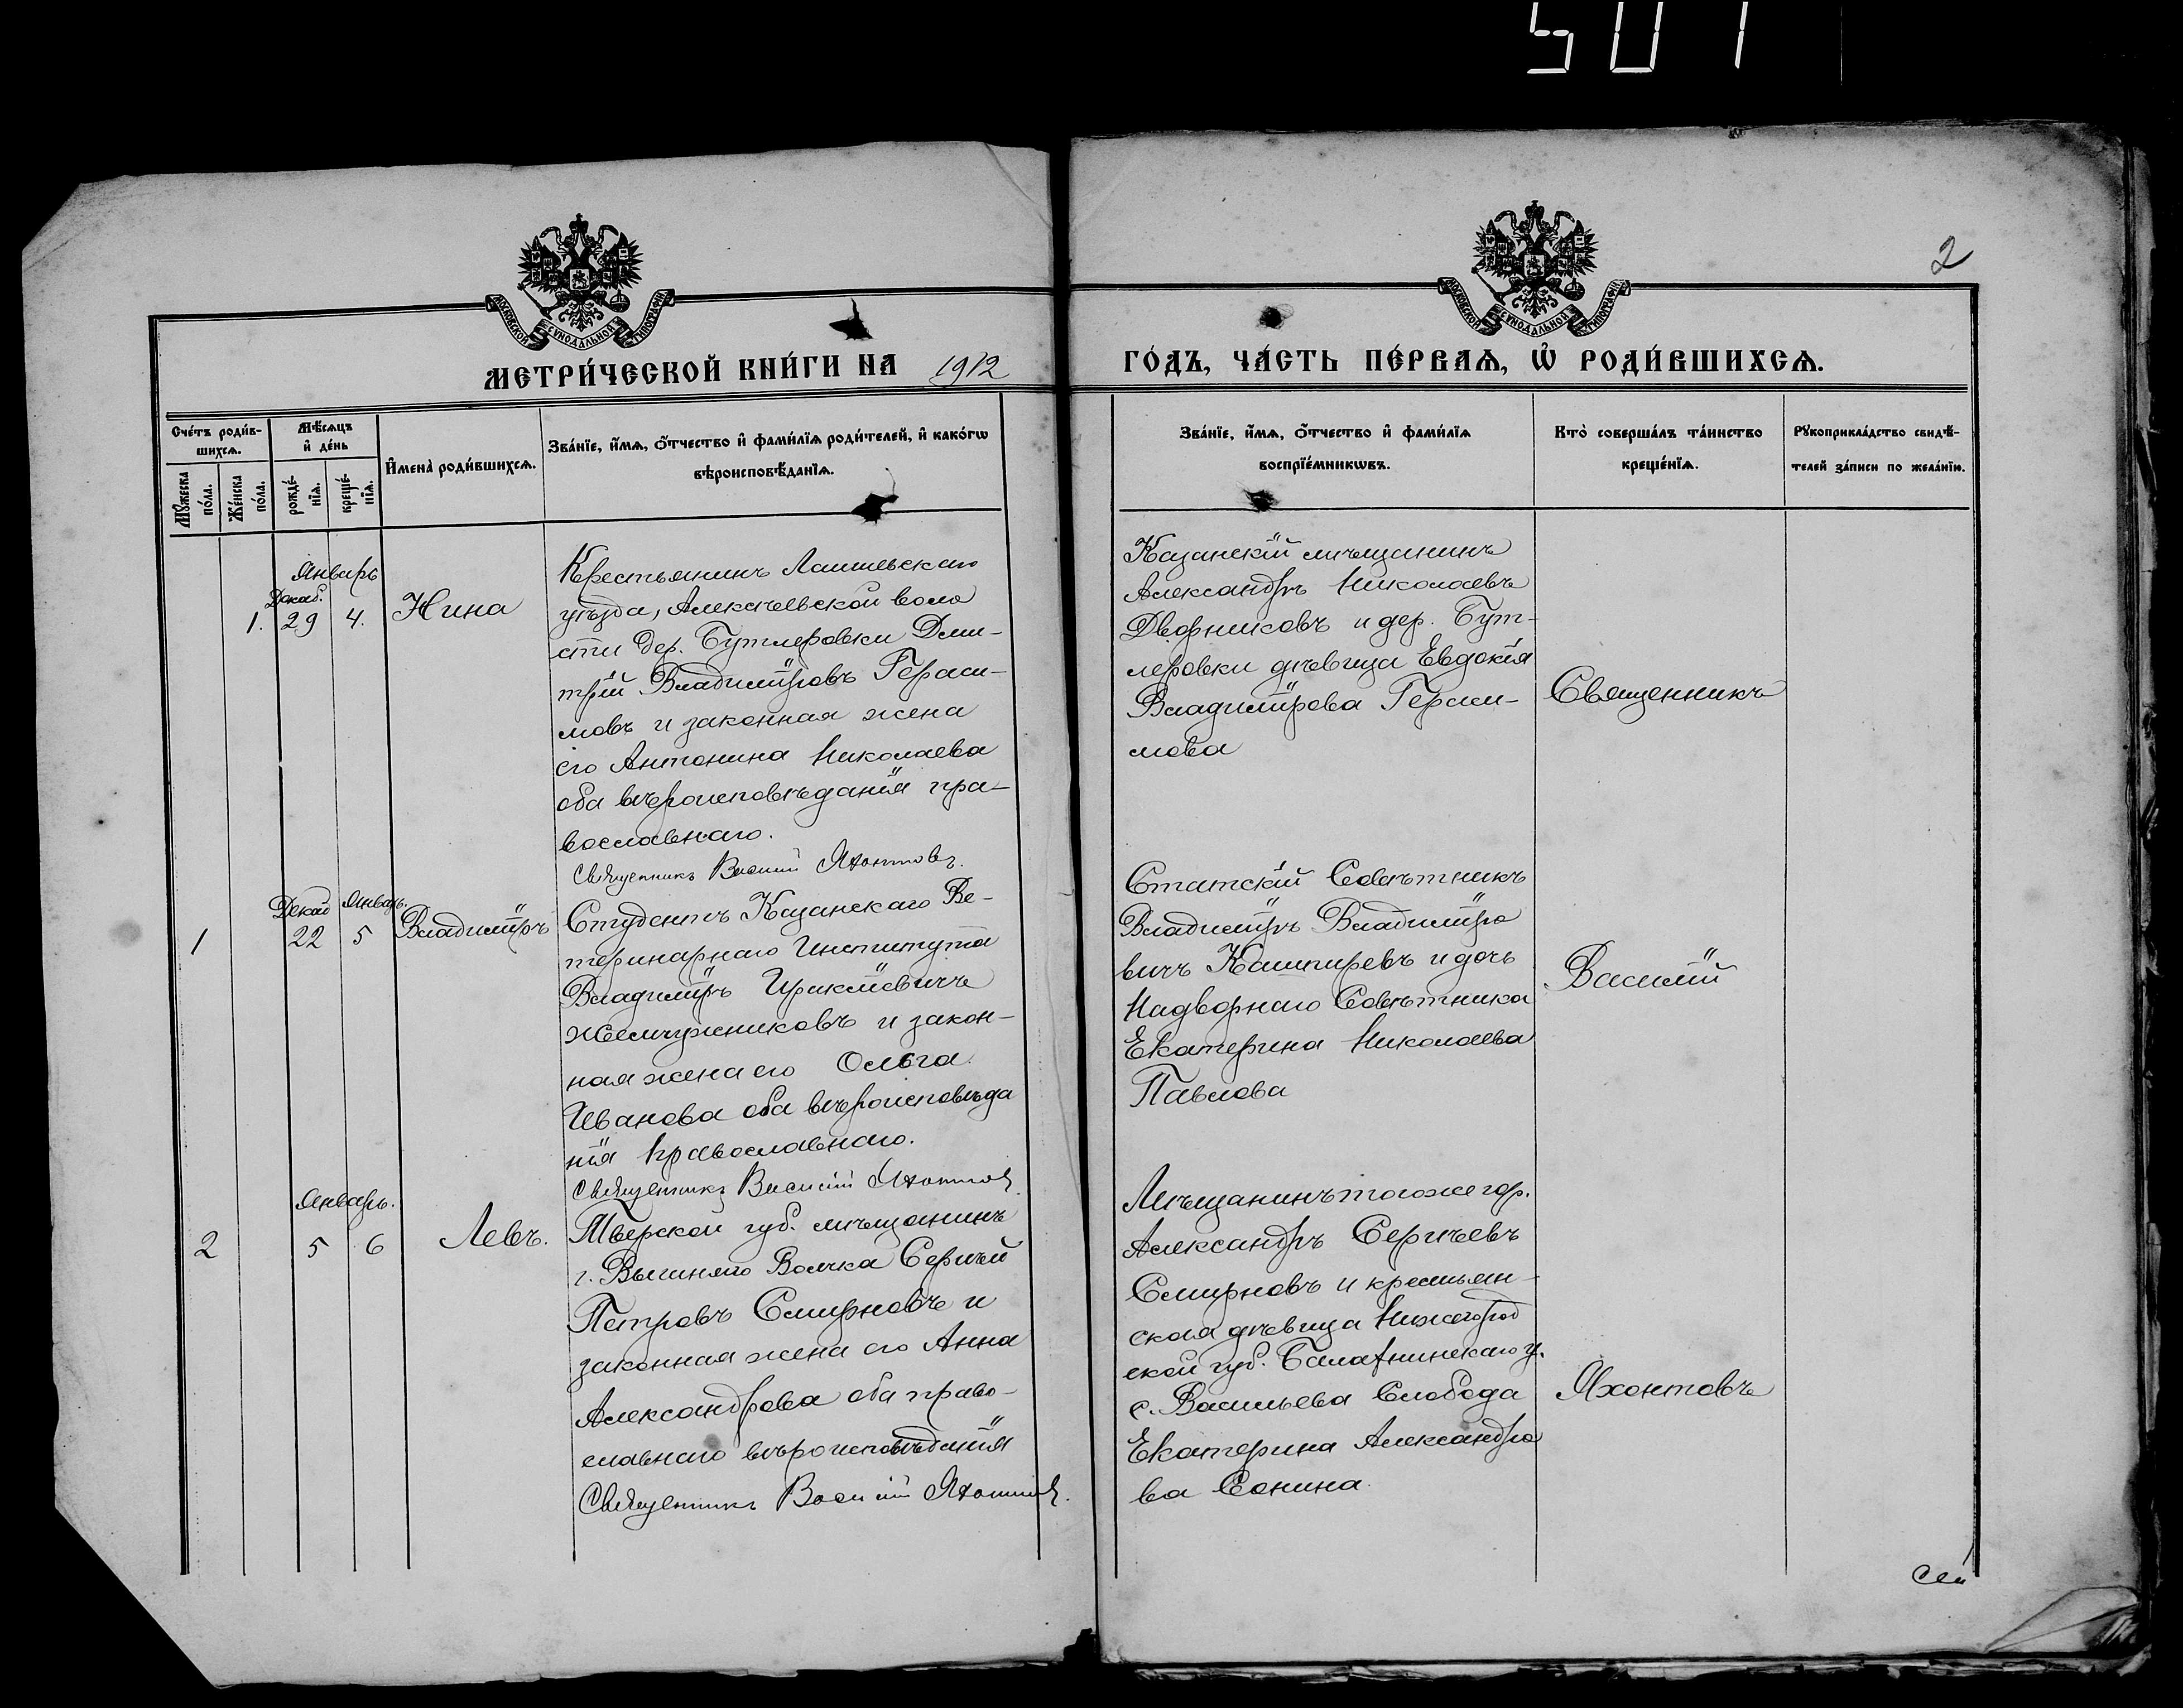 507
2
МОСКОВСКОЙ СѴНОДАЛЬНОЙ ТИПОГРАФІИ
МОСКОВСКОЙ СѴНОДАЛЬНОЙ ТИПОГРАФІИ
МЕТРИ́ЧЕСКОЙ КНИ́ГИ НА 1912 ГО́ДЪ, ЧА́СТЬ ПЕ́РВАѦ, Ѽ РОДИ́ВШИХСѦ.
Сче́тъ роди́в-
шихсѧ.
Мꙋ́жеска по́ла.
Же́нска по́ла.
Мѣ́сѧцъ
и҆ де́нь
рожде́-
нїѧ.
креще́-
нїѧ.
И҆мена̀ роди́вшихсѧ.
Зва́нїе, и҆́мѧ, ѻ҆́тчество и҆ фами́лїѧ роди́телей, и҆ како́гѡ
вѣроисповѣ́данїѧ.
Зва́нїе, и҆́мѧ, ѻ҆́тчество и҆ фами́лїѧ
воспрїе́мникѡвъ.
Кто̀ соверша́лъ та́инство
креще́нїѧ.
Рꙋкоприкла́дство свидѣ́-
телей за́писи по жела́нїю.
Январь
Декаб.
1. 29 4. Нина
Крестьянинъ Лаишевскаго
уѣзда, Алексѣевской воло
сти дер. Бутлеровки Дми-
трій Владиміровъ Гераси-
мовъ и законная жена
его Антонина Николаева
оба вѣроисповѣданія пра-
вославнаго.
Священникъ Василій Яхонтовъ.
Казанскій мѣщанинъ
Александръ Николаевъ
Дворниковъ и дер. Бут-
леровки дѣвица Евдокія
Владимірова Гераси-
мова
Священникъ
Декаб Январь.
1 22 5 Владиміръ
Студентъ Казанскаго Ве-
теринарнаго Института
Владиміръ Иракліевичъ
Жемчужниковъ и закон-
ная жена его Ольга
Иванова оба вѣроисповѣда
нія православнаго.
Священникъ Василій Яхонтовъ
Статскій Совѣтникъ
Владиміръ Владиміро
вичъ Кашпиревъ и дочь
Надворнаго Совѣтника
Екатерина Николаева
Павлова
Василій
Январь.
2 5 6 Левъ.
Тверской губ. мѣщанинъ
г. Вышняго Волчка Сергѣй
Петровъ Смирновъ и
законная жена его Анна
Александрова оба право-
славнаго вѣроисповѣданія
Священникъ Василій Яхонтовъ.
Мѣщанинъ тогоже гор.
Александръ Сергѣевъ
Смирновъ и крестьян-
ская дѣвица Нижегород
ской губ. Балахнинскаго у.
с. Васильева Слобода
Екатерина Александро
ва Сонина.
Яхонтовъ